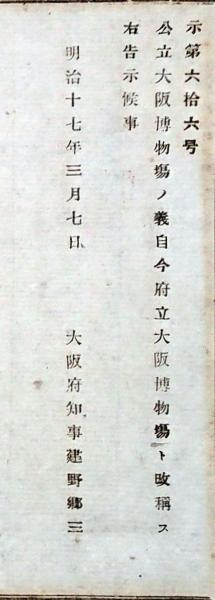 示第六拾六号
公立大阪博物場ノ義自今府立大阪博物場ト改称ス
右告示候事
明治十七年三月七日　大阪府知事建野郷三